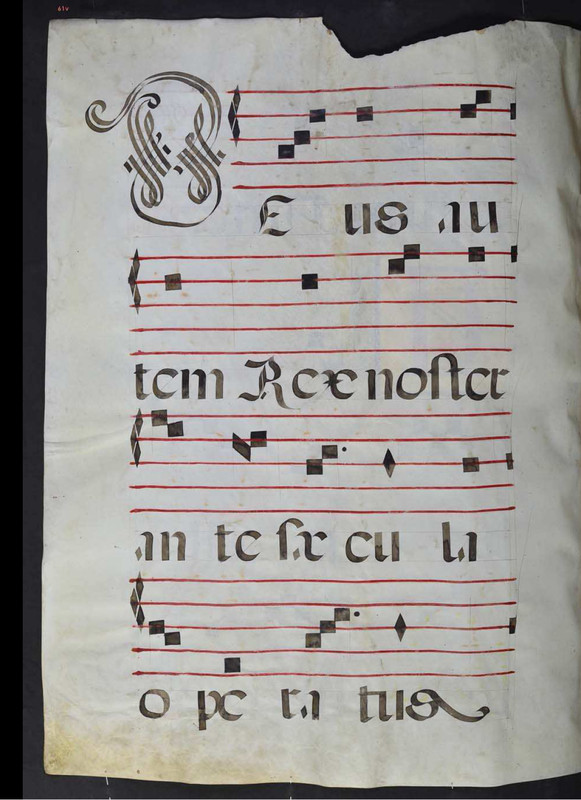 61v
DEus au
tem Rex noster
an te sæ cu la
o pe ra tus